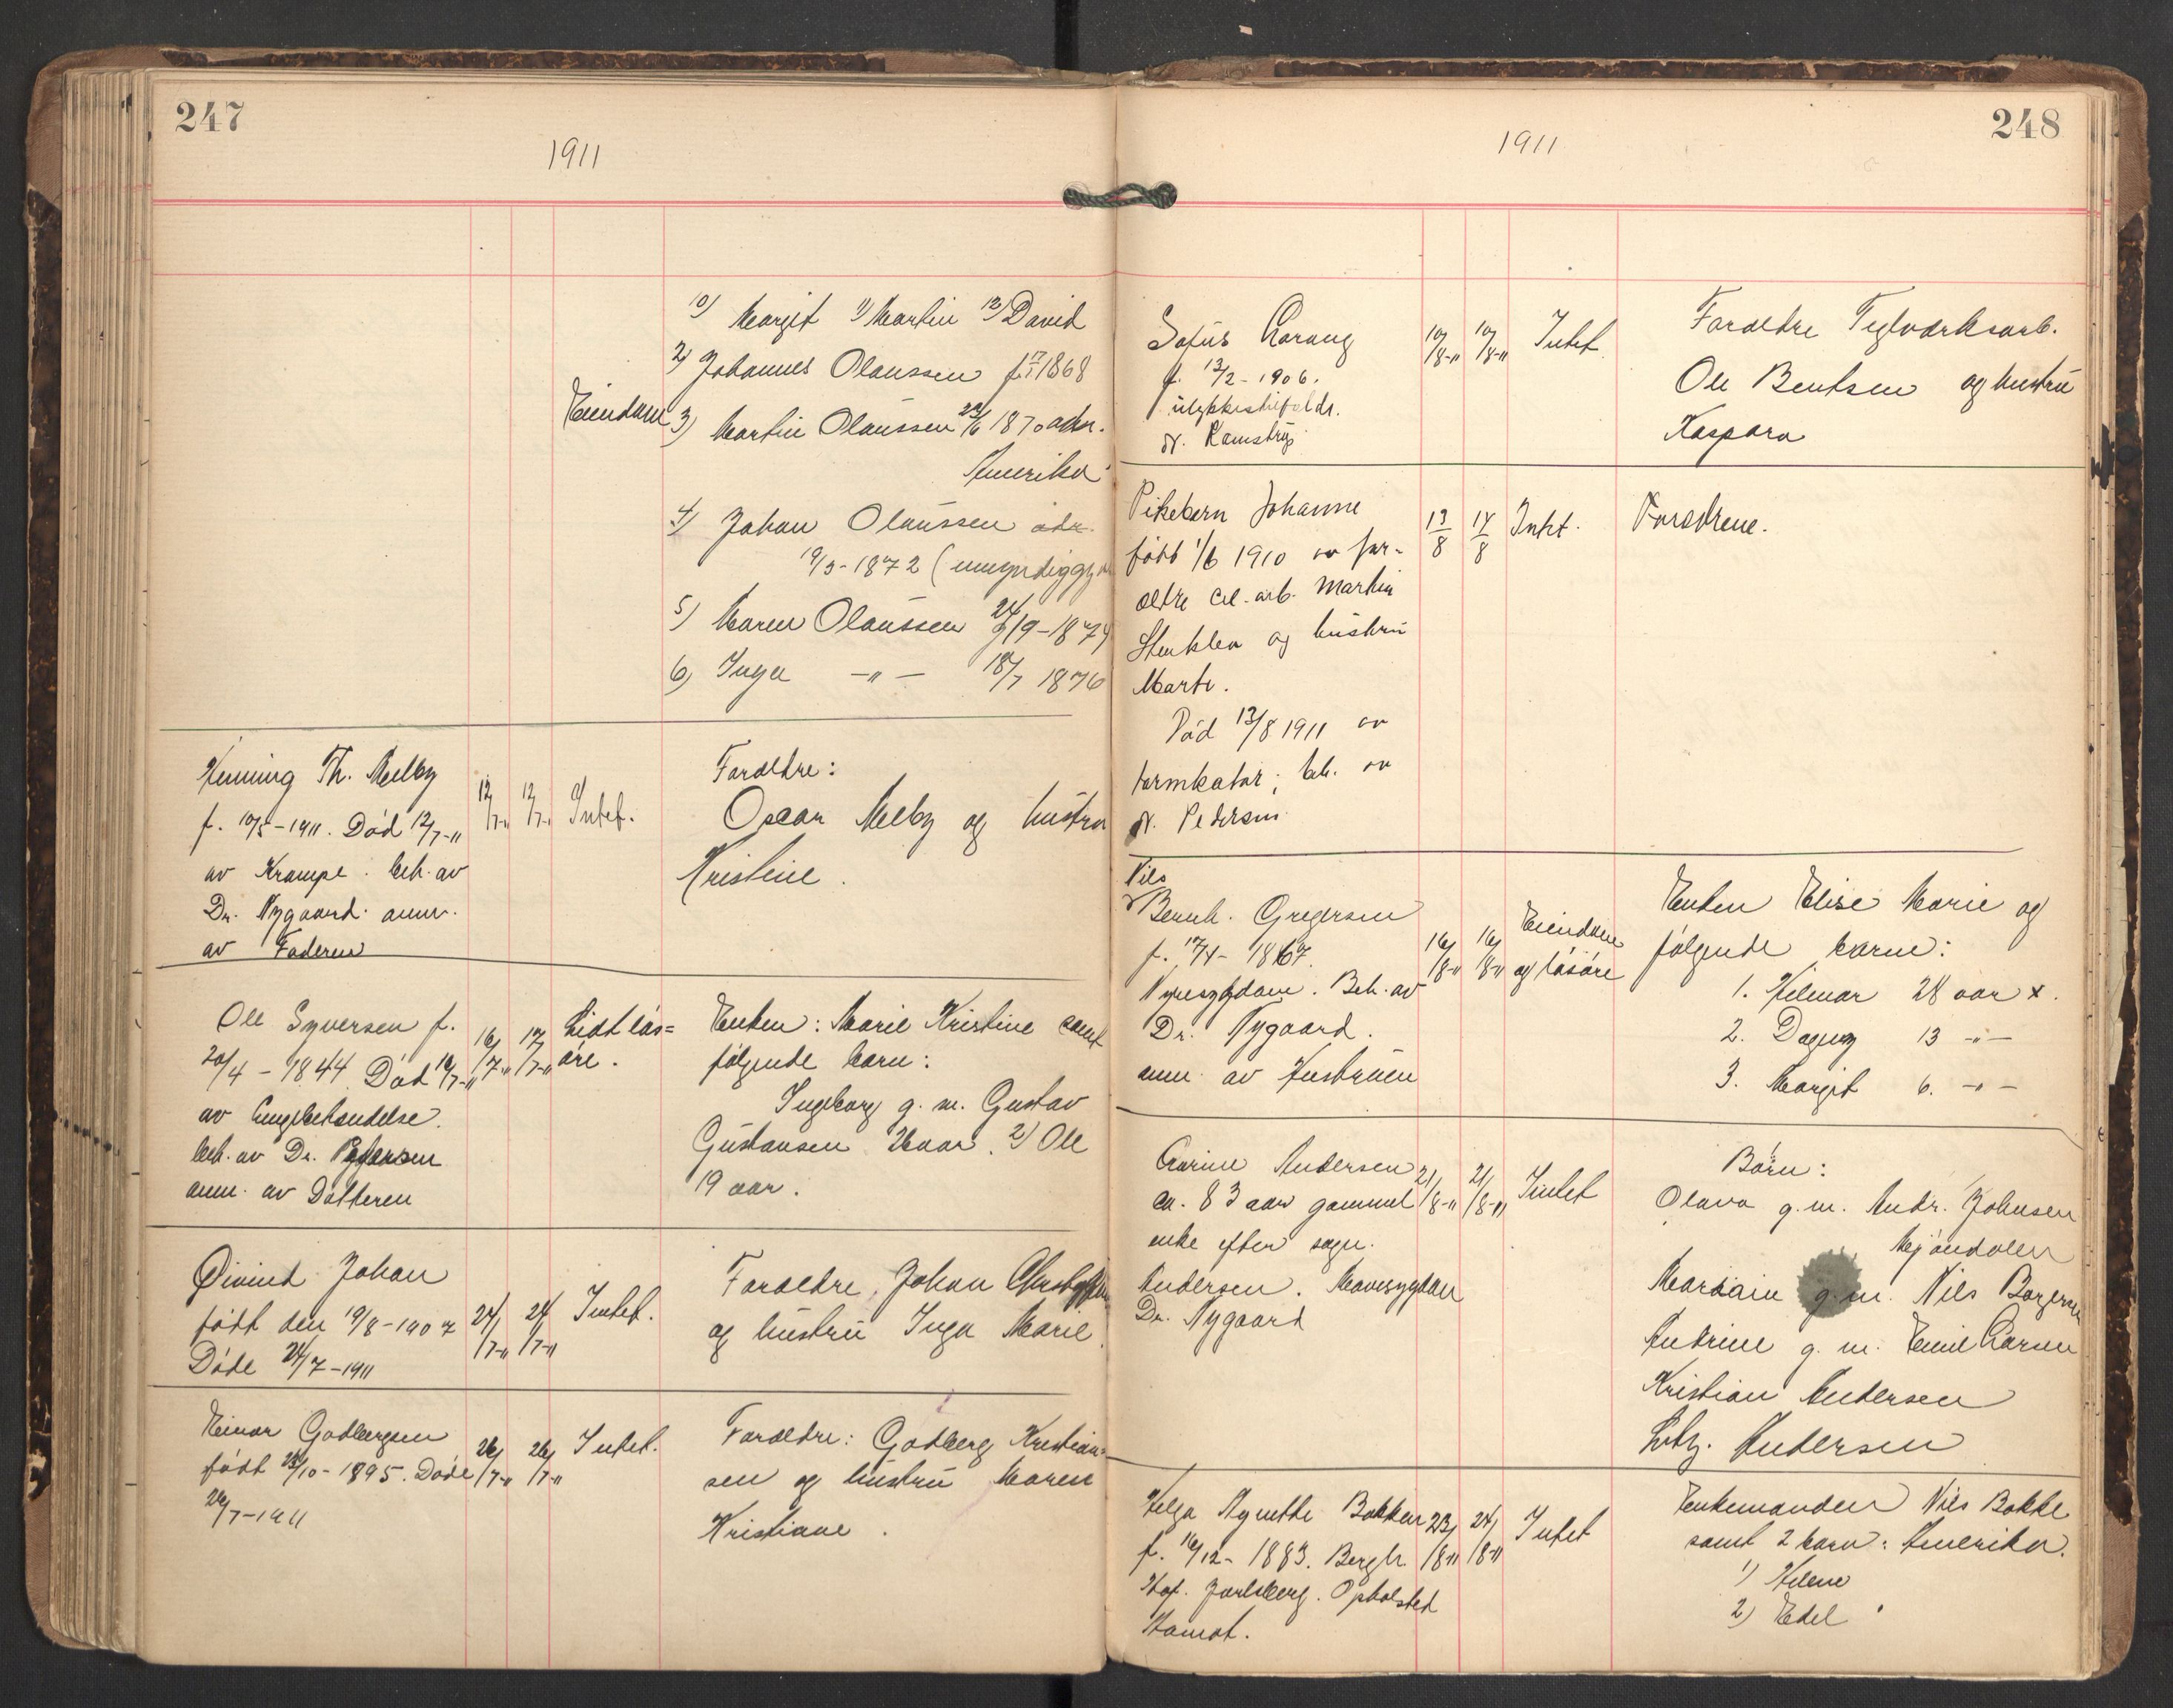 247
1911
10) Margit 11) Martin 12) David
2) Johannes Olaussen f. 17/1 1868
Eiendom 3) Martin Olaussen 23/6 1870 adr.
Amerika
4) Johan Olaussen adr.
19/3-1872 (umyndiggj
5) Maren Olaussen 24/9-1874
6) Inga -"- 18/7 1876
Henning Th. Melby
f. 10/5-1911. Död 12/7-11
av Krampe. beh. av
Dr. Nygaard. anm.
av Faderen
12/7-11 12/7-11 Intet.
Foraeldre:
Oscar Melby og hustru
Kristine.
Ole Syversen f.
20/4-1844. Död 16/7-11
av Lungebetændelse.
beh. av Dr. Pedersen
anm. av Datteren
16/7-11 17/7-11 Lidt lös=
öre.
Enken: Marie Kristine samt
følgende barn:
Ingeborg g. m. Gustav
Gustavsen 26 aar. 2) Ole
19 aar.
Øivind Johan
född den 19/8-1907
Døde 24/7-1911
24/7-11 24/7-11 Intet.
Foraeldre, Johan
og hustru Inga Marie.
Einar Godbergsen
född /10-1895. Døde
26/7-1911
26/7-11 26/7-11 Intet.
Foraeldre: Godberg Kristian-
sen og hustru Maren
Kristiane.
248
1911
Sofus
f. 13/2-1906.
ulykkestilfælde.
Dr. Ramstry
10/8-11 10/8-11 Intet.
Foraeldre Teglværksarb.
Ole Bentsen og hustru
Kaspara
Pikebarn Johanne
född 1/6 1910 av for-
eldre cel. arb. Martin
Stenklev og hustru
Marte.
Död 13/8 1911 av
tarmkatar; beh. av
Dr. Pedersen
13/8 14/8 Intet.
Foreldrene.
Nils
Bernh. Gregersen
f. 17/4-1867.
Nyresygdom. Beh. av
Dr. Nygaard.
anm. av Hustruen
16/8-11 16/8-11 Eiendom
og lösöre
Enken Elise Marie og
følgende barn:
1. Hilmar 28 aar x.
2. Dagny 13 -"-
3. Margit 6. -"-
Andersen
ca. 83 aar gammel
enke efter sagm.
Andersen. Mavesygdom
Dr. Nygaard
21/8-11 21/8-11 Intet
Börn:
Olava g.m. Andr. Johnsen
Mjöndalen
g.m. Nils
Andrine g. m. Emil Larsen
Kristian Andersen
Andersen
Helga Agnethe Bakken
f. 16/12-1883. Bergh
Hof. Jarlsberg. Opholsted
Hamot.
23/8-11 24/8-11 Intet
Enkemanden Nils Bakke
samt 2 barn: Amerika.
1) Helene
2) Edel